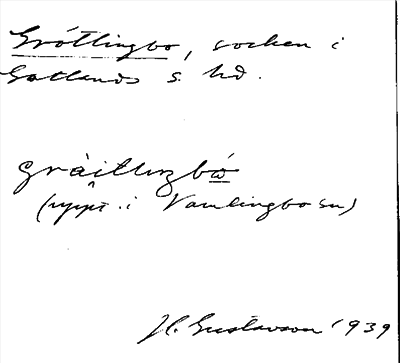 Gröttlingbo, socken i
Gotlands s. hd.
gräitlıŋbω
(uppt. i Vamlingbo sn)
H. Gustavson 1939